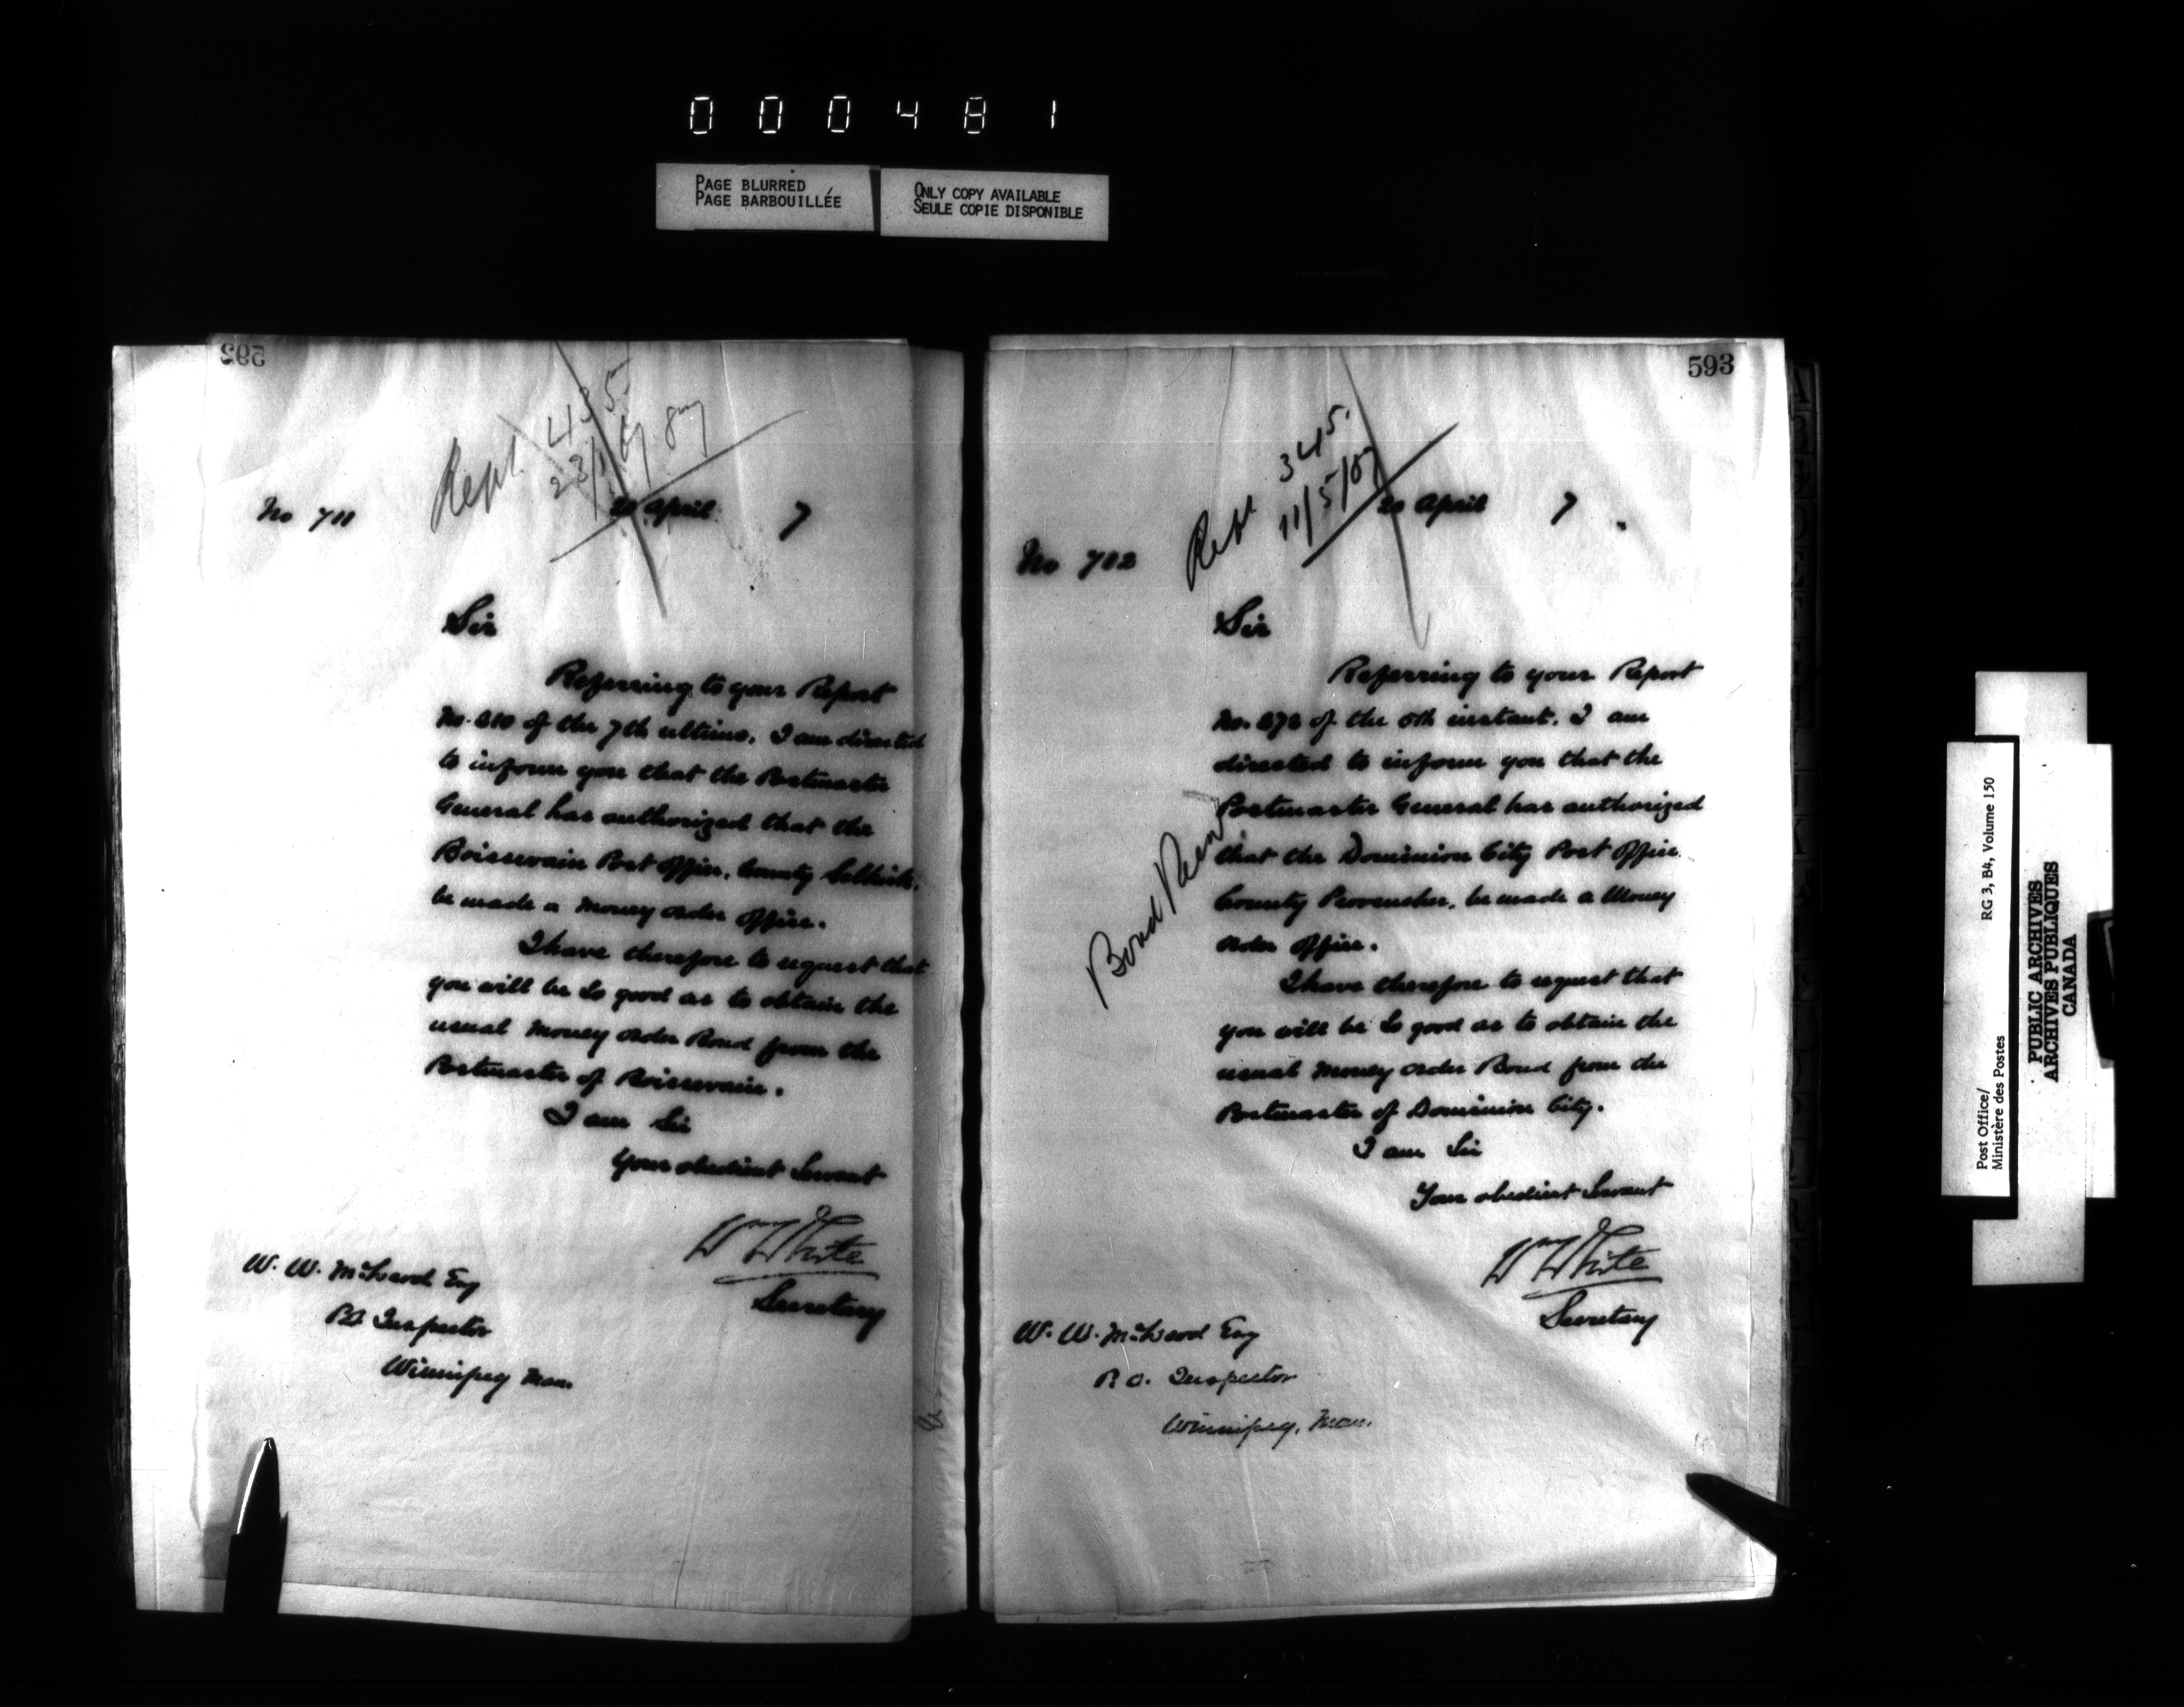 000481
PAGE BLURRED
PAGE BARBOUILLÉE
ONLY COPY AVAILABLE
SEULE COPIE DISPONIBLE
592
Rept. 435
23/6/87
No 711
20 April 7
Sir
Referring to your Report
No. 210 of the 7th ultimo, I am directed
to inform you that the Postmaster
General has authorized that the
Boissevain Post Office, County Selkirk,
be made a Money Order Office.
I have therefore to request that
you will be so good as to obtain the
usual Money Order Bond from the
Postmaster of Boissevain.
I am Sir
Your obedient Servant
Wm White
Secretary
W. W. McLeod Esq
P.O. Inspector
Winnipeg Man.
593
Rept 345.
11/5/87
20 April 7
No 712
Sir
Referring to your Report
No. 272 of the 5th instant. I am
directed to inform you that the
Postmaster General has authorized
that the Dominion City Post Office
County Provencher, be made a Money
Order Office.
I have therefore to request that
you will be so good as to obtain the
usual Money Order Bond from the
Postmaster of Dominion City.
I am Sir
Your obedient Servant
Wm White
Secretary
Bond
W. W. McLeod Esq
P.O. Inspector
Winnipeg, Man.
Post Office/
Ministère des Postes
RG 3, B4, Volume 150
PUBLIC ARCHIVES
ARCHIVES PUBLIQUES
CANADA